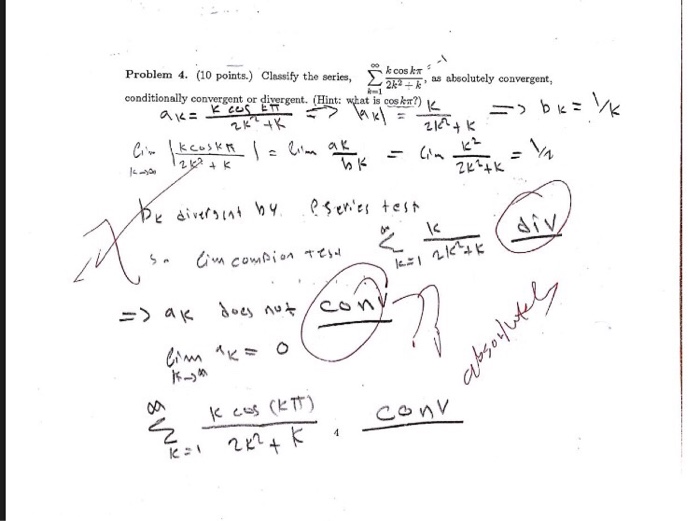 Problem 4. (10 points.) Classify the series, ∑_{k=1}^{∞} k cos kπ / (2k² + k), as absolutely convergent,
conditionally convergent or divergent. (Hint: what is cos kπ?)
ak = k cos kπ / (2k² + k) => |ak| = k / (2k² + k) => bk = 1/k
lim_{k→∞} | k cos kπ / (2k² + k) | = lim ak / bk = lim k² / (2k² + k) = 1/2
bk divergent by Pseries test
so lim compion test ∑_{k=1}^{∞} k / (2k² + k) div
=> ak does not conv ?
absolutely
lim_{k→∞} ak = 0
∑_{k=1}^{∞} k cos (kπ) / (2k² + k) , conv